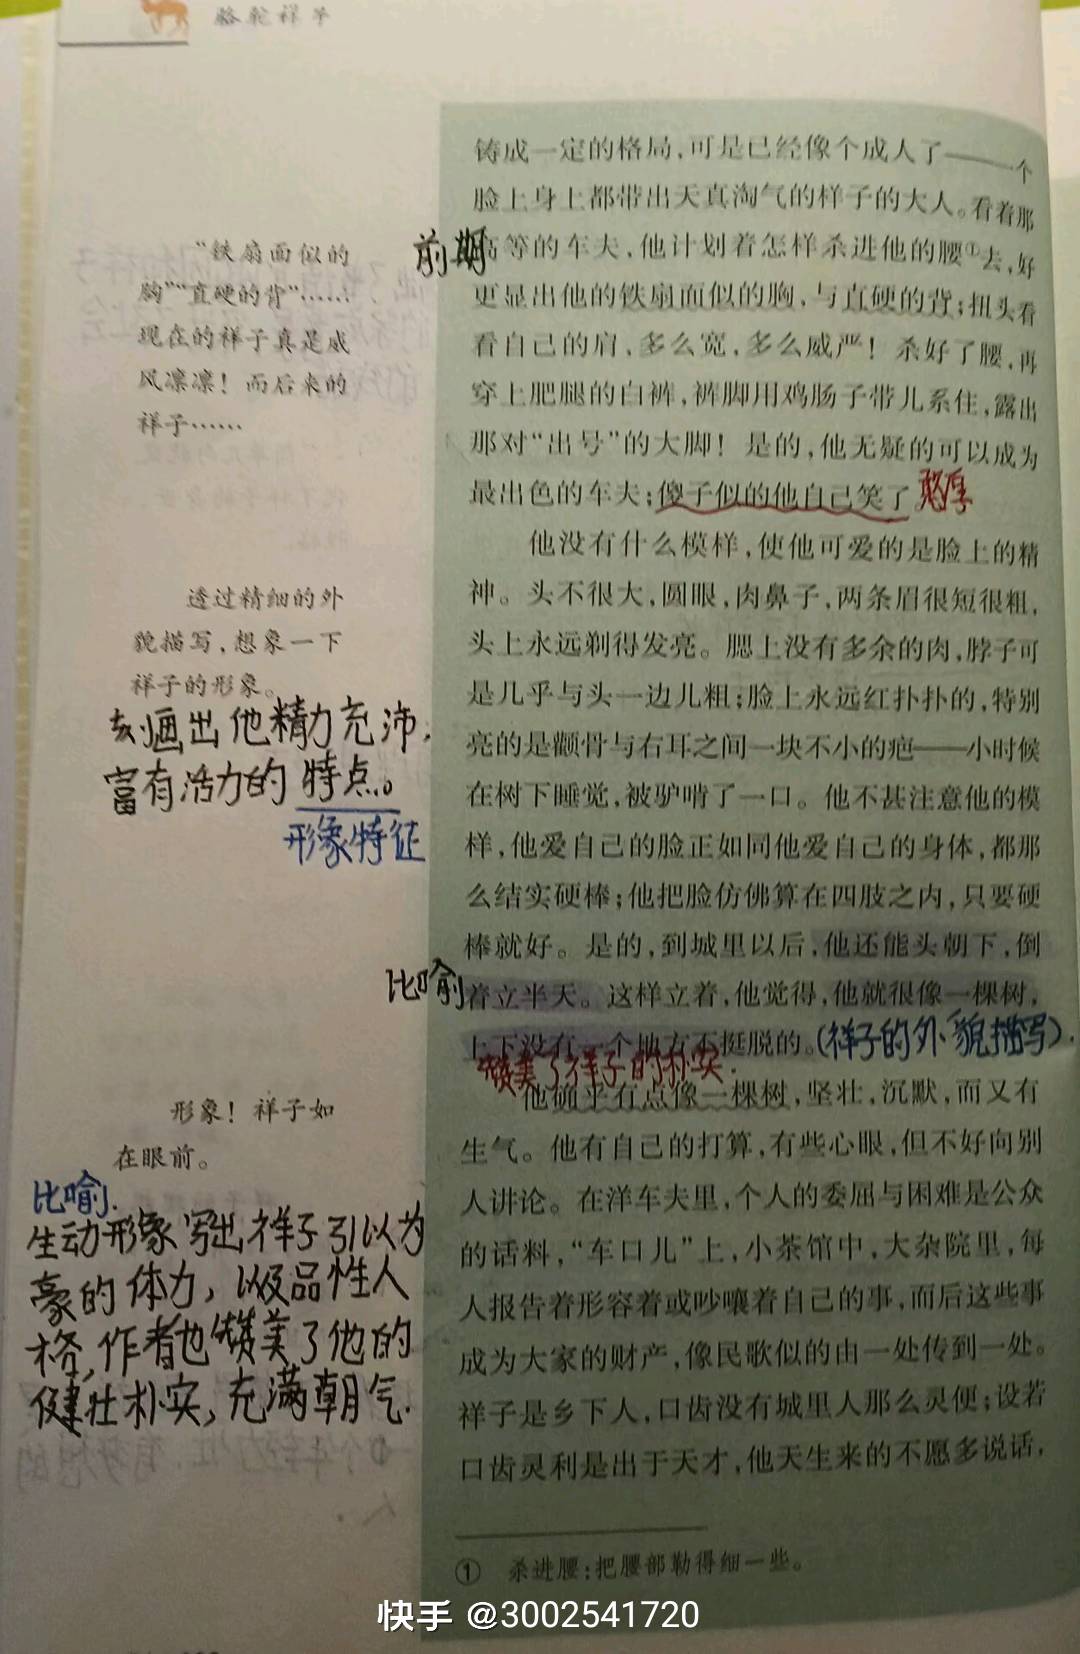 骆驼祥子
铸成一定的格局，可是已经像个成人了——一个
脸上身上都带出天真淘气的样子的大人。看着那
高等的车夫，他计划着怎样杀进他的腰①去，好
更显出他的铁扇面似的胸，与直硬的背；扭头看
看自己的肩，多么宽，多么威严！杀好了腰，再
穿上肥腿的白裤，裤脚用鸡肠子带儿系住，露出
那对“出号”的大脚！是的，他无疑的可以成为
最出色的车夫；傻子似的他自己笑了。
憨厚
前期
“铁扇面似的
胸”“直硬的背”……
现在的祥子真是威
风凛凛！而后来的
祥子……
他没有什么模样，使他可爱的是脸上的精
神。头不很大，圆眼，肉鼻子，两条眉很短很粗，
头上永远剃得发亮。腮上没有多余的肉，脖子可
是几乎与头一边儿粗；脸上永远红扑扑的，特别
亮的是颧骨与右耳之间一块不小的疤——小时候
在树下睡觉，被驴啃了一口。他不甚注意他的模
样，他爱自己的脸正如同他爱自己的身体，都那
么结实硬棒；他把脸仿佛算在四肢之内，只要硬
棒就好。是的，到城里以后，他还能头朝下，倒
着立半天。这样立着，他觉得，他就很像一棵树，
上下没有一个地方不挺脱的。
(祥子的外貌描写).
比喻
赞美了祥子的朴实.
透过精细的外
貌描写，想象一下
祥子的形象。
刻画出他精力充沛，
富有活力的特点。
形象特征
他确乎有点像一棵树，坚壮，沉默，而又有
生气。他有自己的打算，有些心眼，但不好向别
人讲论。在洋车夫里，个人的委屈与困难是公众
的话料，“车口儿”上，小茶馆中，大杂院里，每
人报告着形容着或吵嚷着自己的事，而后这些事
成为大家的财产，像民歌似的由一处传到一处。
祥子是乡下人，口齿没有城里人那么灵便；设若
口齿灵利是出于天才，他天生来的不愿多说话，
形象！祥子如
在眼前。
比喻.
生动形象写出祥子引以为
豪的体力，以及品性人
格，作者也赞美了他的
健壮朴实，充满朝气.
① 杀进腰：把腰部勒得细一些。
快手 @3002541720